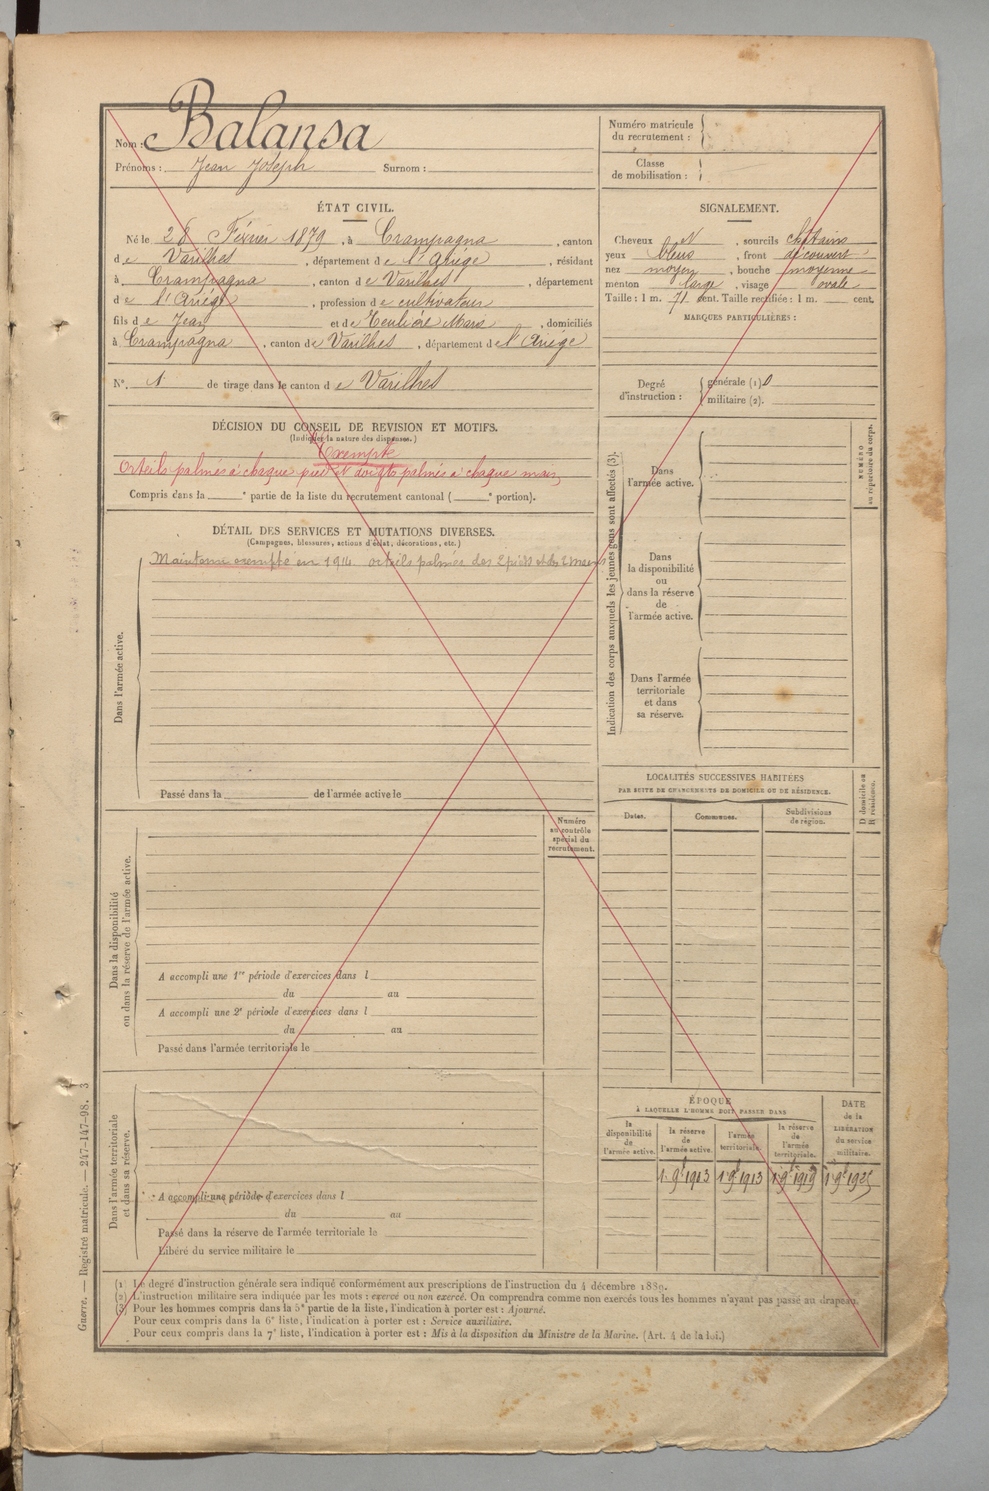 Nom : Balansa
Prénoms : Jean Joseph Surnom :
Numéro matricule
du recrutement :
Classe
de mobilisation :
ÉTAT CIVIL.
Né le 28 Février 1879, à Crampagna, canton
de Varilhes, département de l'Ariège, résidant
à Crampagna, canton de Varilhes, département
de l'Ariège, profession de cultivateur
fils de Jean et de Marie, domiciliés
à Crampagna, canton de Varilhes, département de l'Ariège
N° 1 de tirage dans le canton de Varilhes
SIGNALEMENT.
Cheveux et, sourcils châtains
yeux bleus, front découvert
nez moyen, bouche moyenne
menton large, visage ovale
Taille : 1 m. 71 cent. Taille rectifiée : 1 m. cent.
MARQUES PARTICULIÈRES :
Degré
d'instruction :
générale (1)
militaire (2).
DÉCISION DU CONSEIL DE REVISION ET MOTIFS.
(Indiquer la nature des dispenses.)
Exempté
Orteils palmés à chaque pied et doigts palmés à chaque main
Compris dans la e partie de la liste du recrutement cantonal ( e portion).
DÉTAIL DES SERVICES ET MUTATIONS DIVERSES.
(Campagnes, blessures, actions d'éclat, décorations, etc.)
Maintenu exempté en 1914. orteils palmés des 2 pieds et des 2 mains
Dans l'armée active.
Passé dans la de l'armée active le
Indication des corps auxquels les jeunes gens sont affectés (3).
Dans
l'armée active.
Dans
la disponibilité
ou
dans la réserve
de
l'armée active.
Dans l'armée
territoriale
et dans
sa réserve.
NUMÉRO
au répertoire du corps.
LOCALITÉS SUCCESSIVES HABITÉES
PAR SUITE DE CHANGEMENTS DE DOMICILE OU DE RÉSIDENCE.
Dates. Communes. Subdivisions
de région.
D domicile ou
R résidence.
Numéro
au contrôle
spécial du
recrutement.
Dans la disponibilité
ou dans la réserve de l'armée active.
A accompli une 1re période d'exercices dans l
du au
A accompli une 2e période d'exercices dans l
du au
Passé dans l'armée territoriale le
Dans l'armée territoriale
et dans sa réserve.
A accompli une période d'exercices dans l
du au
Passé dans la réserve de l'armée territoriale le
Libéré du service militaire le
ÉPOQUE
À LAQUELLE L'HOMME DOIT PASSER DANS
la
disponibilité
de
l'armée active.
la réserve
de
l'armée active.
l'armée
territoriale.
la réserve
de
l'armée
territoriale.
DATE
de la
LIBÉRATION
du service
militaire.
1. 9bre 1913 1. 9bre 1913 1. 9bre 1919 1. 9bre 1925
(1) Le degré d'instruction générale sera indiqué conformément aux prescriptions de l'instruction du 4 décembre 1889.
(2) L'instruction militaire sera indiquée par les mots : exercé ou non exercé. On comprendra comme non exercés tous les hommes n'ayant pas passé au drapeau.
(3) Pour les hommes compris dans la 5e partie de la liste, l'indication à porter est : Ajourné.
Pour ceux compris dans la 6e liste, l'indication à porter est : Service auxiliaire.
Pour ceux compris dans la 7e liste, l'indication à porter est : Mis à la disposition du Ministre de la Marine. (Art. 4 de la loi.)
Guerre. — Registre matricule. — 247-147-98. 3